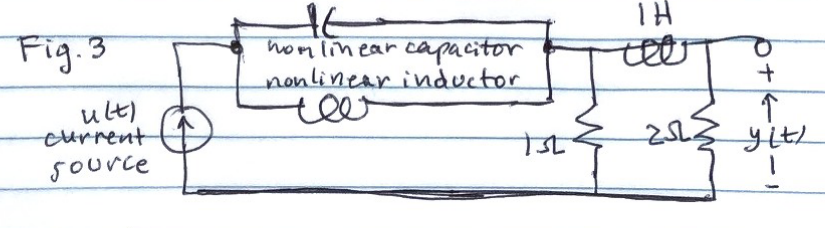 1H
Fig. 3
nonlinear capacitor
nonlinear inductor
+
u(t)
current
source
1Ω
2Ω
y(t)
-